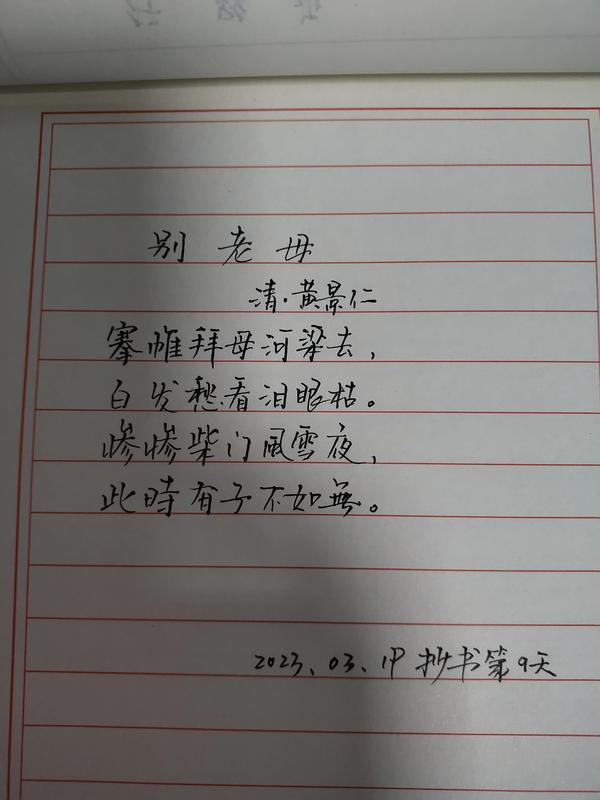 别老母
清·黄景仁
搴帷拜母河梁去，
白发愁看泪眼枯。
惨惨柴门风雪夜，
此時有子不如無。
2023、03、19 抄书第9天